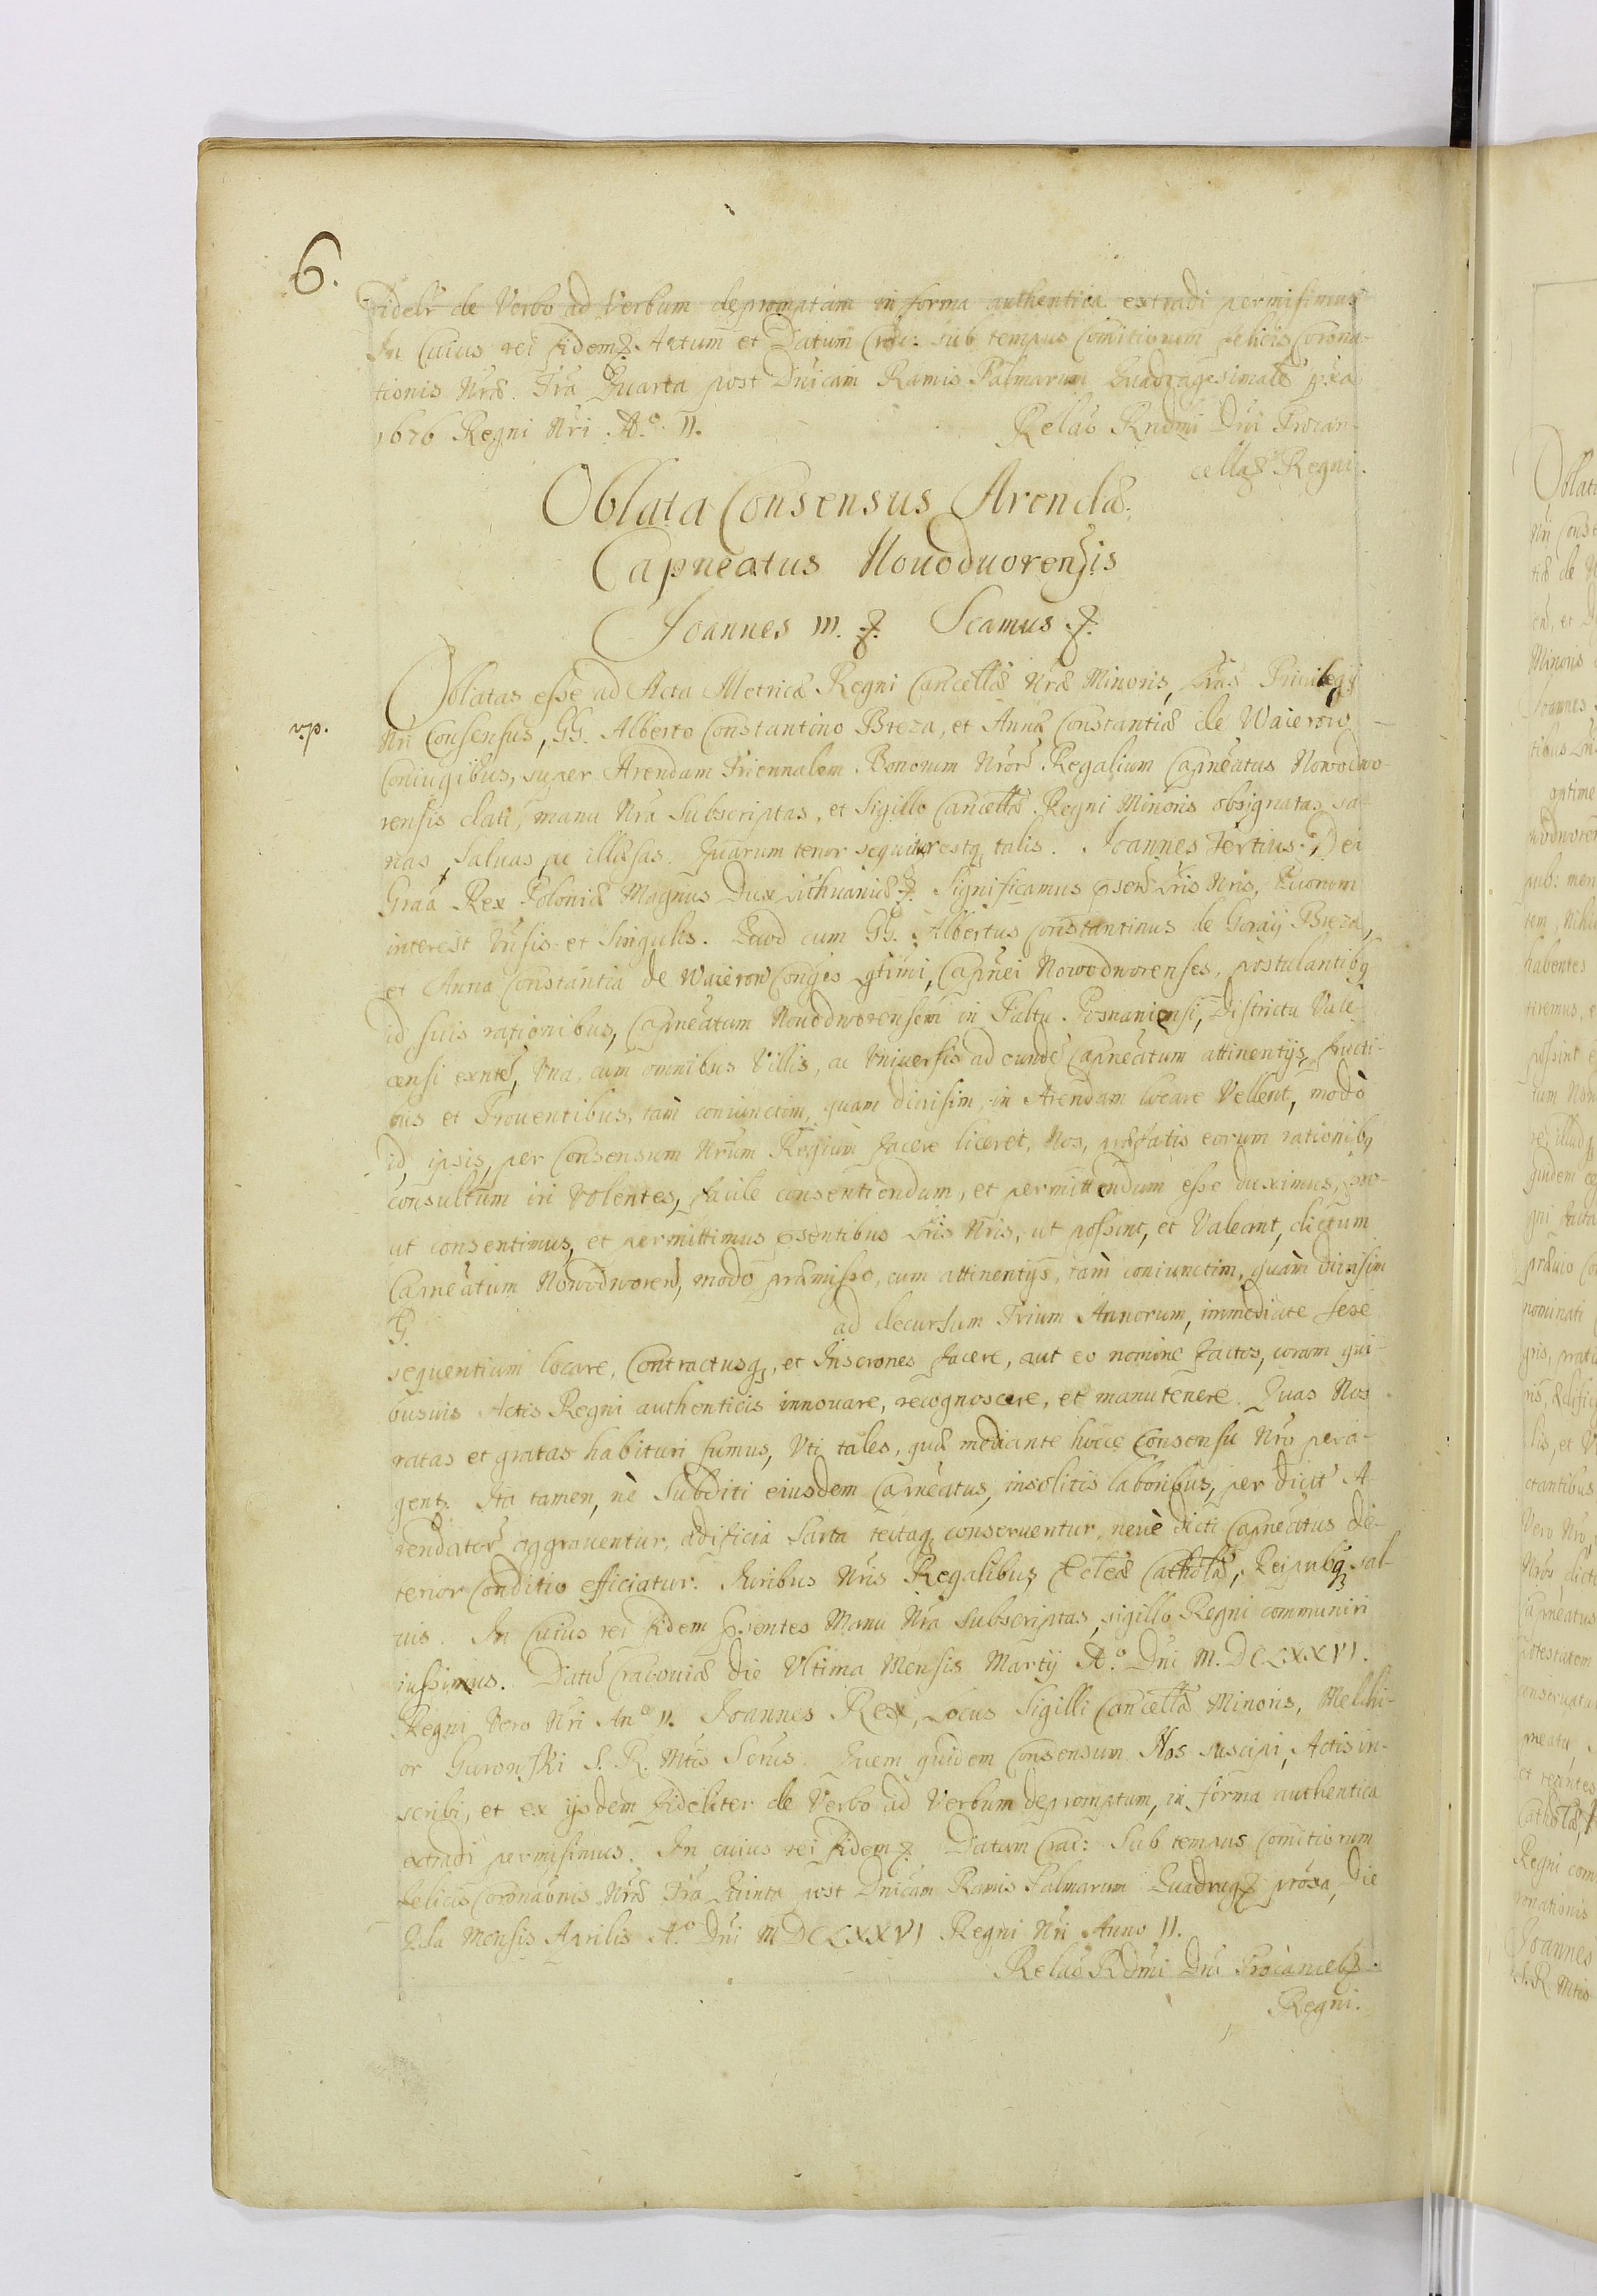 6.
Fidelr de Verbo ad Verbum depromptam in forma authentica extradi permisimus
In Cuius rei fidem Actum et Datum Crac: sub tempus Comitiorum felicis Corona-
tionis Nrae. Fra Quarta post Dnicam Ramis Palmarum Quadragesimale pxa
1676 Regni Nri A.o II.
Relao Rndmi Dni Procan-
cellae Regni.
Oblata Consensus Arendae
Capneatus Nouoduorensis
Joannes III. Scamus
Oblatas esse ad Acta Metricae Regni Cancellae Nrae Minoris, Lras Priuilegij
v.p.
Nri Consensus, GG. Alberto Constantino Breza, et Annae Constantiae de Waierow
Coniugibus, super Arendam Triennalem Bonorum Nror Regalium Capneatus Nowodwo-
rensis dati, manu Nra Subscriptas, et Sigillo Cancellae Regni Minoris obsignatas, sa-
nas, Saluas ac illaesas. Quarum tenor sequitur estq talis. Joannes Tertius Dei
Graa Rex Poloniae Magnus Dux Lithuaniae Significamus psen Lris Nris, Quorum
interest Vnsis et Singulis. Quod cum GG. Albertus Constantinus de Goraij Breza,
et Anna Constantia de Waierow Conges gtimi, Capnei Nowodworenses, postulantibq
id suis rationibus, Capneatum Nouodworensem in Paltu Posnaniensi, Districtu Vale-
censi exnte, Vna cum omnibus Villis, ac Vniuersis ad eunde Capneatum attinentijs, fructi-
bus et Prouentibus, tam coniunctim, quam diuisim, in Arendam locare Vellent, modo
id, ipsis, per Consensum Nrum Regium facere liceret, Nos, praefatis eorum rationibq
consultum iri Volentes, facile consentiendum, et permittendum esse duximus, pro-
ut consentimus, et permittimus psentibus Lris Nris, ut possint, et Valeant, dictum
Capneatum Nowodworen, modo praemisso, cum attinentijs, tam coniunctim, quam diuisim
G. ad decursum Trium Annorum, immediate sese
sequentium locare, Contractusq, et Inscrones facere, aut eo nomine factos, coram qui-
busuis Actis Regni authenticis innouare, recognoscere, et manutenere. Quas Nos
ratas et gratas habituri sumus, Vti tales, quae mediante hocce Consensu Nro pera-
gent. Ita tamen, ne Subditi eiusdem Capneatus, insolitis laboribus, per dict A-
rendator aggrauentur, aedificia Sarta tectaq conseruentur, neue dicti Capneatus de-
terior Conditio efficiatur. Juribus Nris Regalibus, Ecleae Catholae, Reipubq sal-
uis. In Cuius rei fidem psentes Manu Nra Subscriptas, sigillo Regni communiri
iussimus. Datu Cracouiae die Vltima Mensis Martij A.o Dni M.DCLXXVI.
Regni Vero Nri An.o II. Joannes Rex, Locus Sigilli Cancellae Minoris, Melchi-
or Gurowski S. R. Mtis Scrius. Quem quidem Consensum Nos suscipi, Actis in-
scribi, et ex ijsdem fideliter de Verbo ad Verbum depromptum, in forma authentica
extradi permisimus. In cuius rei fidem Datum Crac: Sub tempus Comitiorum
felicis Coronaonis Nrae Fra Quinta post Dnicam Ramis Palmarum Quadrag proxa, Die
2da Mensis Aprilis A.o Dni MDCLXXVI Regni Nri Anno II.
Relao Rdmi Dni Procancel
Regni.